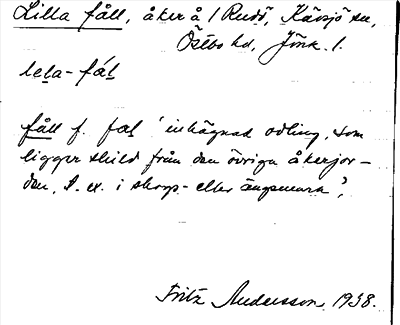 Lilla fåll, åker å Rudö, Kävsjö sn,
Östbo hd, Jönk. l.
lela-fål
fåll f. fal 'inhägnad odling, som
ligger skild från den övriga åkerjor-
den, t. ex. i skogs- eller ängsmark'.
Fritz Andersson 1938.